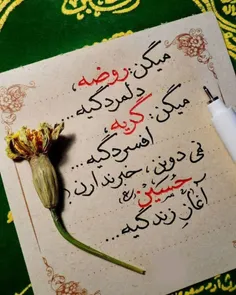 میگن: روضه،
دلمردگیه...
میگن: گریه،
افسردگیه...
نمی دونن، خبر ندارن؛
حسین (ع)
آغاز زندگیه...